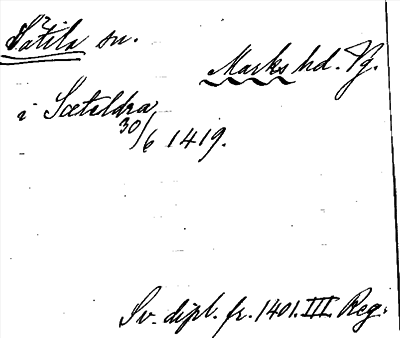 Sätila sn.
Marks hd. Vg.
i Sætaldra
30/6 1419.
Sv. dipl. fr. 1401. III. Reg.